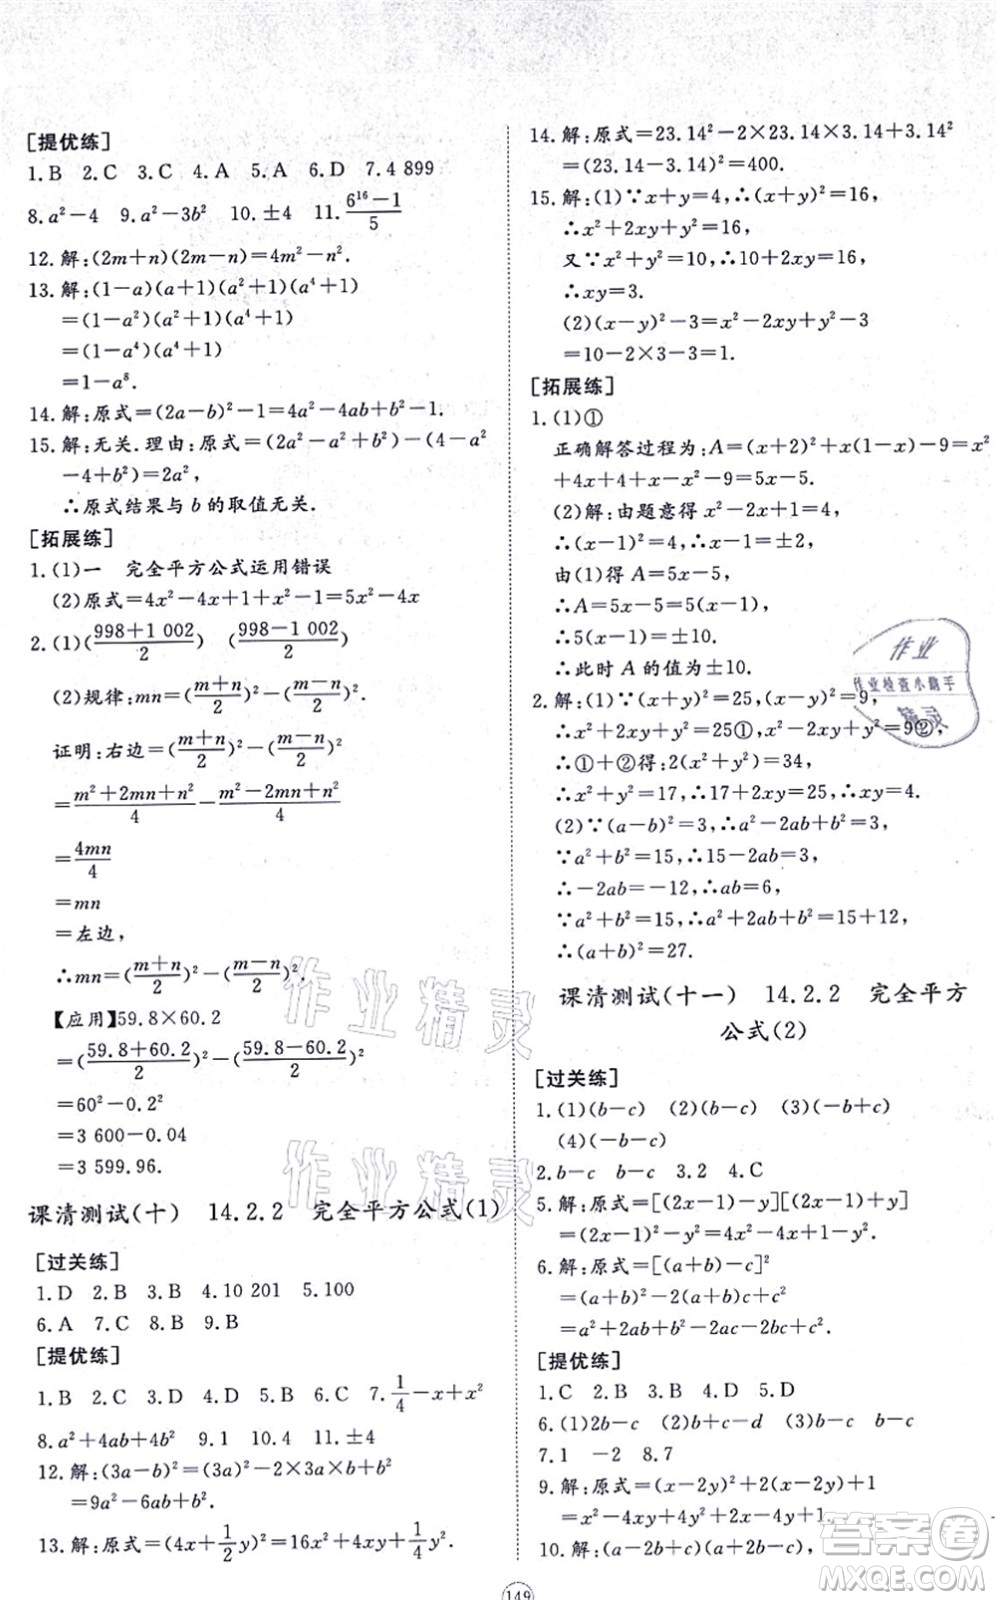 [提优练]
1.B 2.C 3.C 4.A 5.A 6.D 7.4 899
8.a²-4 9.a²-3b² 10.±4 11.(6¹⁶-1)/5
12.解:(2m+n)(2m-n)=4m²-n².
13.解:(1-a)(a+1)(a²+1)(a⁴+1)
=(1-a²)(a²+1)(a⁴+1)
=(1-a⁴)(a⁴+1)
=1-a⁸.
14.解:原式=(2a-b)²-1=4a²-4ab+b²-1.
15.解:无关.理由:原式=(2a²-a²+b²)-(4-a²
-4+b²)=2a²,
∴原式结果与b的取值无关.
[拓展练]
1.(1)一 完全平方公式运用错误
(2)原式=4x²-4x+1+x²-1=5x²-4x
2.(1)((998+1 002)/2) ((998-1 002)/2)
(2)规律:mn=((m+n)/2)²-((m-n)/2)².
证明:右边=((m+n)/2)²-((m-n)/2)².
=(m²+2mn+n²)/4-(m²-2mn+n²)/4
=4mn/4
=mn
=左边,
∴mn=((m+n)/2)²-((m-n)/2)².
【应用】59.8×60.2
=((59.8+60.2)/2)²-((59.8-60.2)/2)²
=60²-0.2²
=3 600-0.04
=3 599.96.
课清测试(十) 14.2.2 完全平方公式(1)
[过关练]
1.D 2.B 3.B 4.10 201 5.100
6.A 7.C 8.B 9.B
[提优练]
1.B 2.C 3.D 4.D 5.B 6.C 7.1/4-x+x²
8.a²+4ab+4b² 9.1 10.4 11.±4
12.解:(3a-b)²=(3a)²-2×3a×b+b²
=9a²-6ab+b².
13.解:原式=(4x+1/2y)²=16x²+4xy+1/4y².
14.解:原式=23.14²-2×23.14×3.14+3.14²
=(23.14-3.14)²=400.
15.解:(1)∵x+y=4,∴(x+y)²=16,
∴x²+2xy+y²=16,
又∵x²+y²=10,∴10+2xy=16,
∴xy=3.
(2)(x-y)²-3=x²-2xy+y²-3
=10-2×3-3=1.
[拓展练]
1.(1)①
正确解答过程为:A=(x+2)²+x(1-x)-9=x²
+4x+4+x-x²-9=5x-5.
(2)解:由题意得x²-2x+1=4,
∴(x-1)²=4,∴x-1=±2,
由(1)得A=5x-5,
∴A=5x-5=5(x-1),
∴5(x-1)=±10.
∴此时A的值为±10.
2.解:(1)∵(x+y)²=25,(x-y)²=9,
∴x²+2xy+y²=25①,x²-2xy+y²=9②,
∴①+②得:2(x²+y²)=34,
∴x²+y²=17,∴17+2xy=25,∴xy=4.
(2)∵(a-b)²=3,∴a²-2ab+b²=3,
∵a²+b²=15,∴15-2ab=3,
∴-2ab=-12,∴ab=6,
∵a²+b²=15,∴a²+2ab+b²=15+12,
∴(a+b)²=27.
课清测试(十一) 14.2.2 完全平方
公式(2)
[过关练]
1.(1)(b-c) (2)(b-c) (3)(-b+c)
(4)(-b-c)
2.b-c b-c 3.2 4.C
5.解:原式=[(2x-1)-y][(2x-1)+y]
=(2x-1)²-y²=4x²-4x+1-y².
6.解:原式=[(a+b)-c]²
=(a+b)²-2(a+b)c+c²
=a²+2ab+b²-2ac-2bc+c².
[提优练]
1.C 2.B 3.D 4.D 5.D
6.(1)2b-c (2)b+c-d (3)b-c b-c
7.1 -2 8.7
9.解:原式=(x-2y)²+2(x-2y)+1
=x²-4xy+4y²+2x-4y+1.
10.解:(a-2b+c)(a+2b-c),
149
作业
作业检查小助手
精灵
作业精灵
作业精灵
答案圈
MXQE.COM